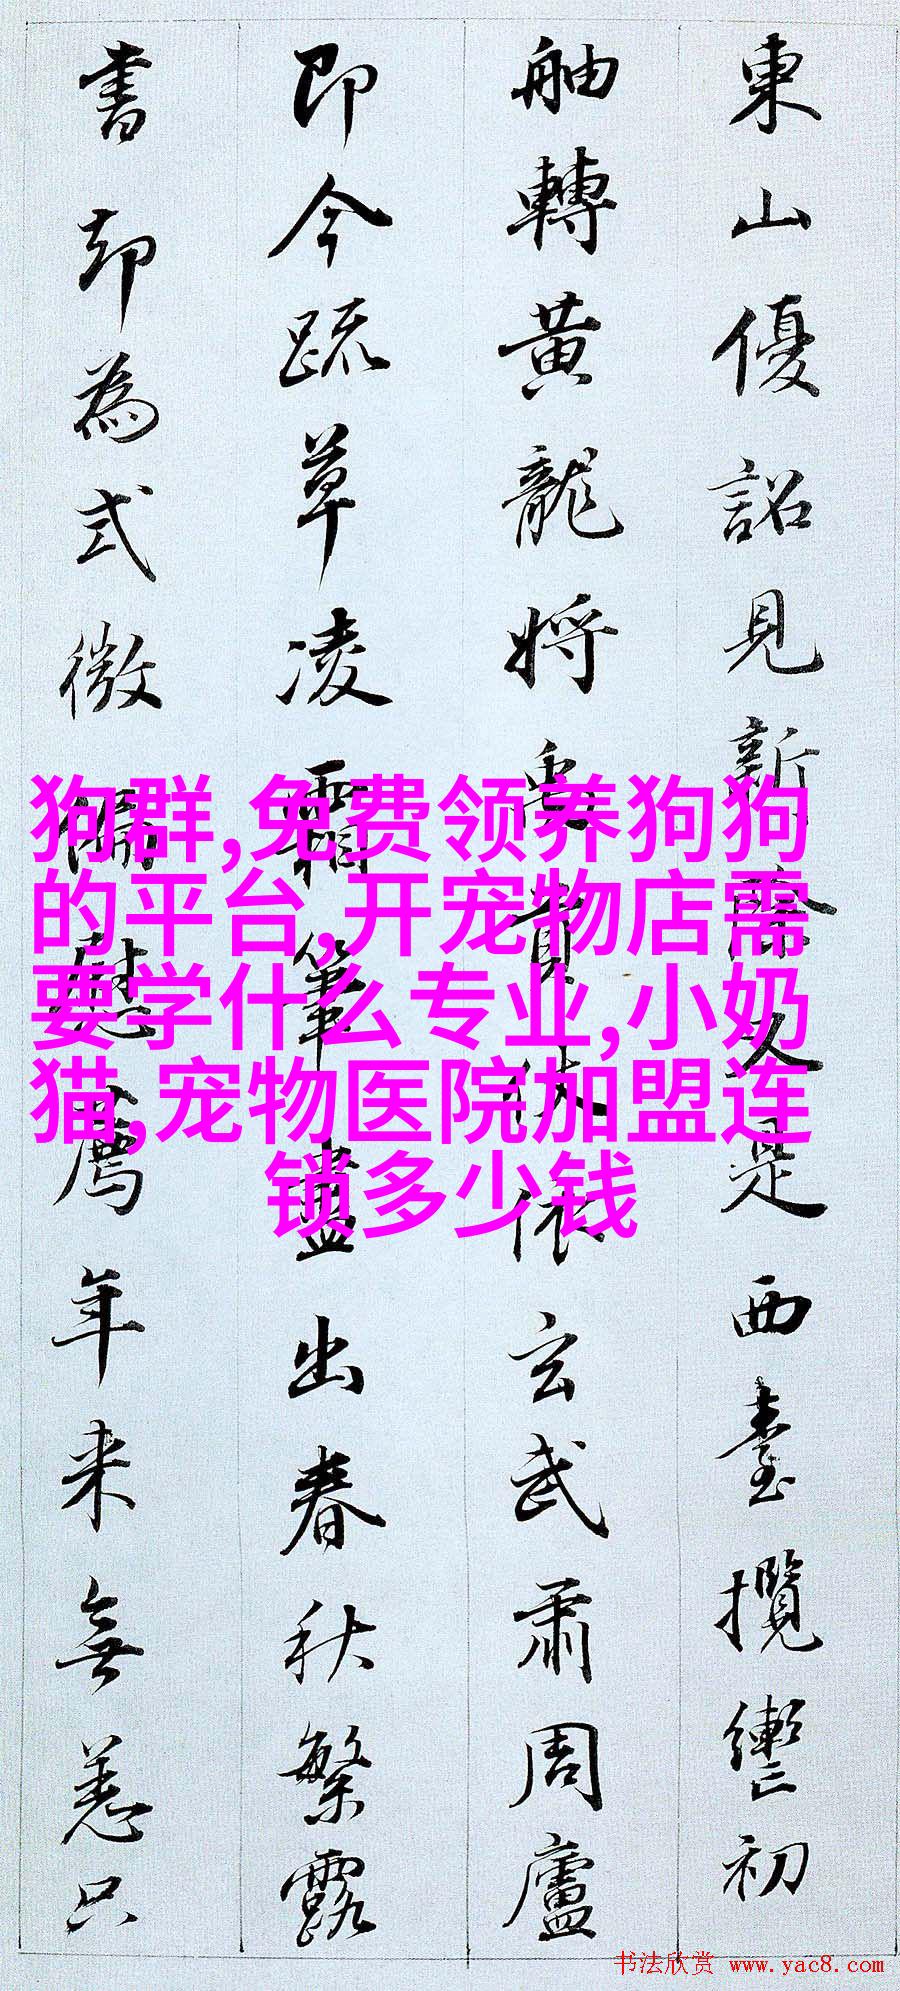 東山優詔見新除又是西臺攬轡初
舳轉黃龍將禹貢仗依玄武肅周廬
即今疏草凌霜筆盡出春秋繁露
書却為式微偏慰薦年来無恙只
狗群,免费领养狗狗
的平台,开宠物店需
要学什么专业,小奶
猫,宠物医院加盟连
锁多少钱
书法欣赏 www.yac8.com